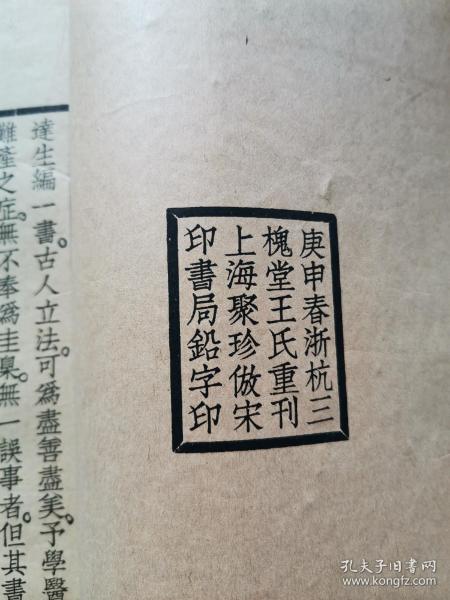 庚申春浙杭三
槐堂王氏重刊
上海聚珍倣宋
印書局鉛字印
達生編一書。古人立法。可爲盡善盡美。予學醫
難產之症。無不奉爲圭臬。無一誤事者。但其書
孔夫子旧书网
www.kongfz.com